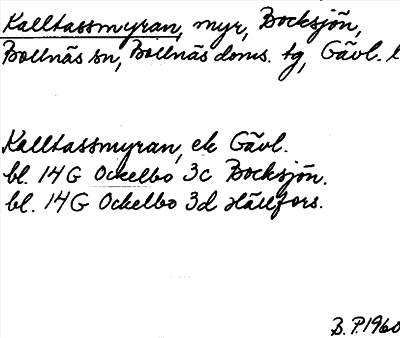 Kalltassmyran, myr, Bocksjön,
Bollnäs sn, Bollnäs doms. tg, Gävl. l
Kalltassmyran, ek Gävl.
bl. 14G Ockelbo 3c Bocksjön.
bl. 14G Ockelbo 3d Hällfors.
B.P.1960